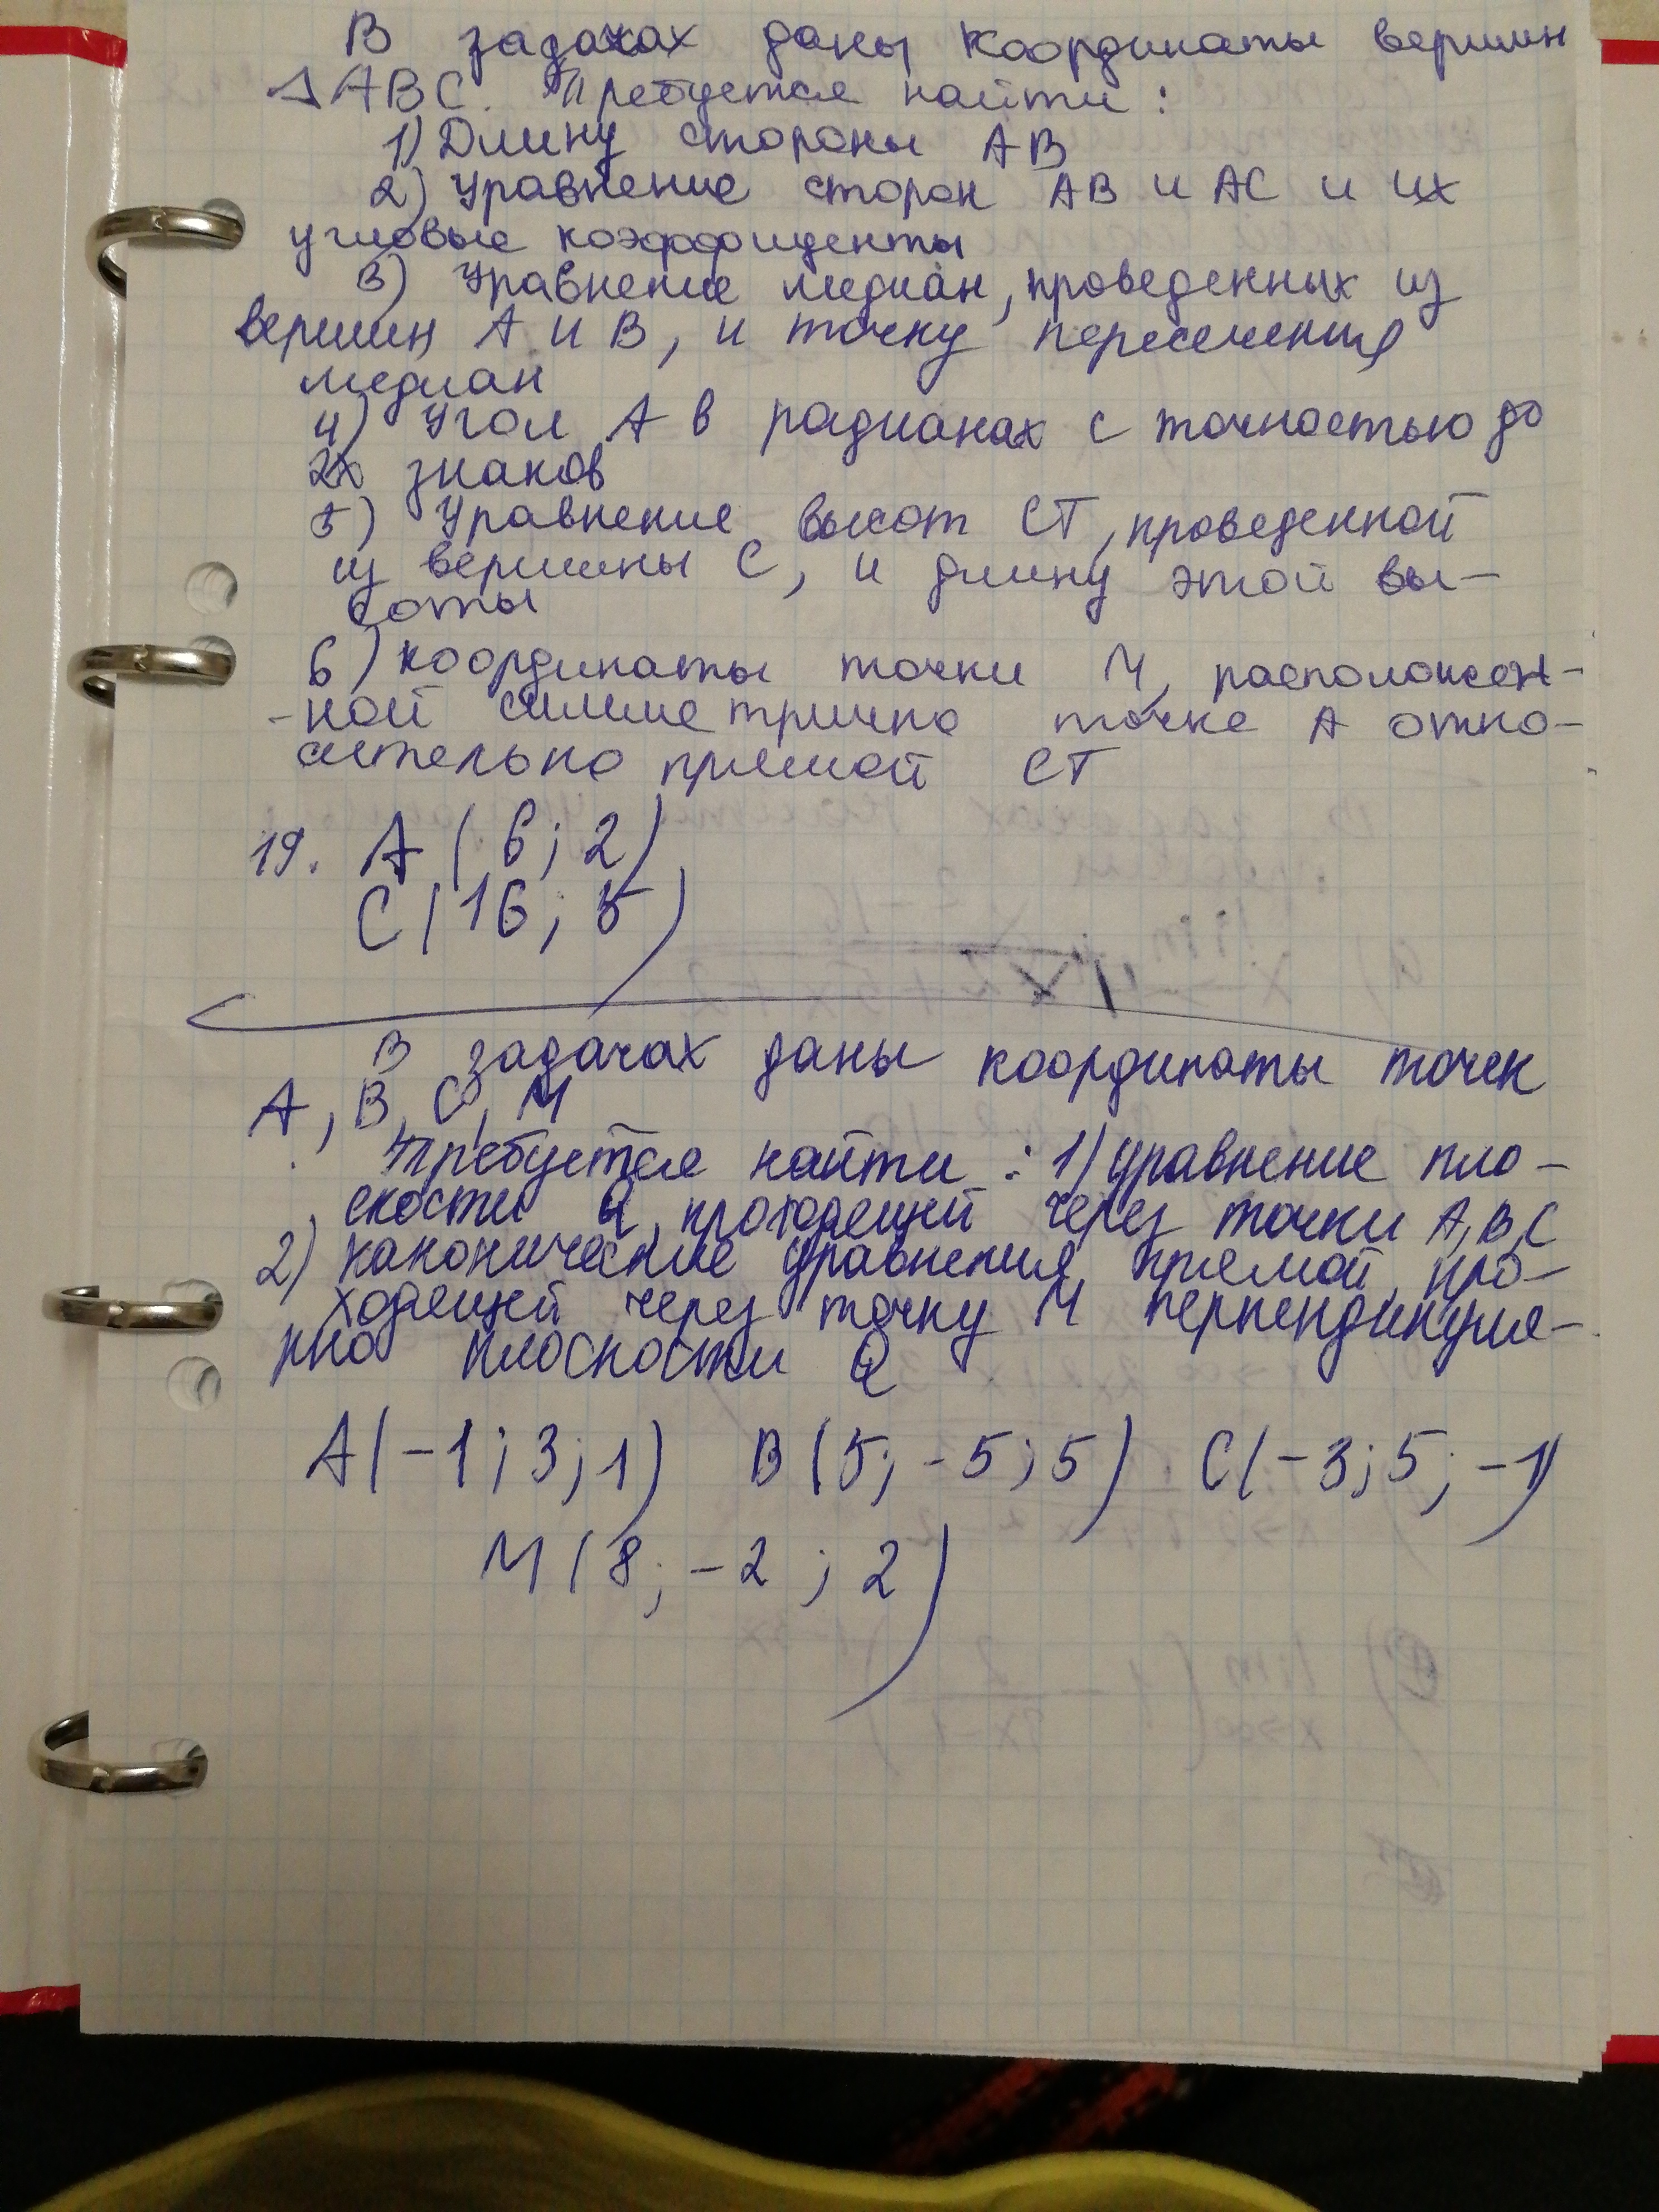 В задачах даны координаты вершин
ΔABC. Требуется найти:
1) Длину стороны AB
2) Уравнение сторон AB и AC и их
угловые коэффициенты
3) Уравнение медиан, проведенных из
вершин A и B, и точку пересечения
медиан
4) Угол A в радианах с точностью до
2х знаков
5) Уравнение высот CT, проведенной
из вершины C, и длину этой вы-
соты
6) координаты точки M, расположен-
-ной симметрично точке A отно-
сительно прямой CT
19. A(6; 2)
C(16; 5)
В задачах даны координаты точек
A, B, C, M
Требуется найти: 1) уравнение пло-
скости Q, проходящей через точки A, B, C
2) канонические уравнения прямой, про-
ходящей через точку M перпендикуля-
рно плоскости Q
A(-1; 3; 1) B(5; -5; 5) C(-3; 5; -1)
M(8; -2; 2)